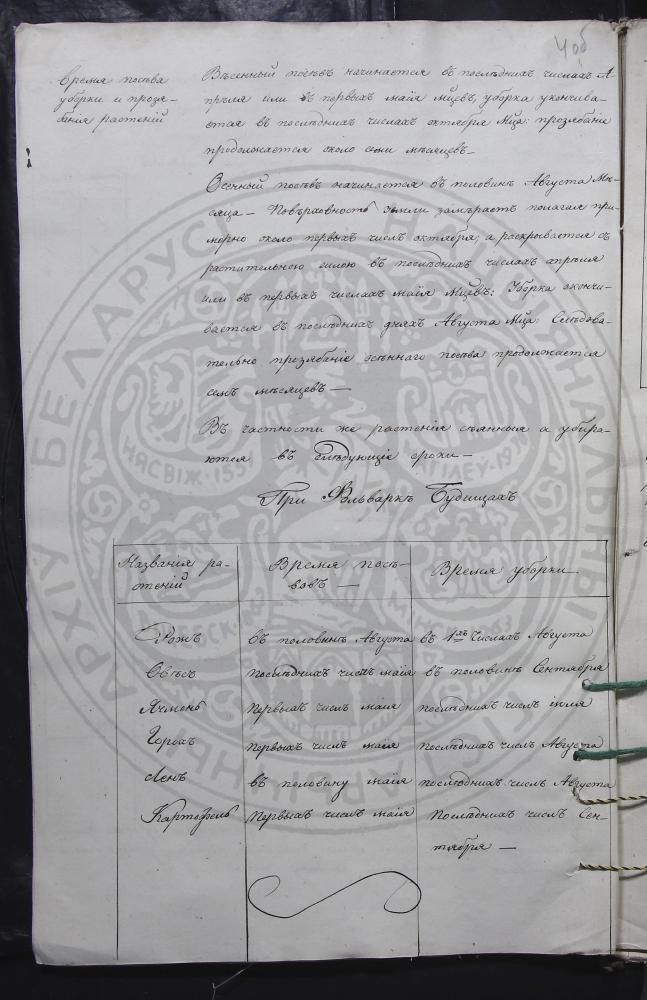 4об
Время посѣва
уборки и прозя-
бѣнія растеній
Вѣсенный посѣвъ начинается въ послѣднихъ числахъ А
прѣля или въ первыхъ маія мцевъ, уборка укончива-
ется въ послѣднихъ числахъ октября Мца: прозябѣніе
продолжается около семи мѣсяцевъ.
Осенный посѣвъ начинается въ половинѣ Августа Мѣ-
сяца — Повѣрхность земли замѣрзаетъ полагая при-
мѣрно около первыхъ числъ октября, а раскрывается съ
растительною силою въ послѣднихъ числахъ апрѣля
или въ первыхъ числахъ маія Мцевъ: Уборка окончи-
вается въ послѣднихъ дняхъ Августа Мца: Слѣдова-
тельно прозябѣніе осѣннаго посѣва продолжается
семь мѣсяцевъ —
Въ частности же растенія сѣянныя а убира-
ются въ слѣдующіе сроки —
При Фольваркѣ Будищахъ
Названія ра-
стеній
Время посѣ-
вовъ —
Время уборки
Рожъ въ половинѣ Августа въ 1хъ Числахъ Августа
Овѣсъ Послѣднихъ числъ маія въ половинѣ Сентября
Ячмень Первыхъ числъ маія послѣднихъ числъ іюля
Горохъ Первыхъ числъ маія Послѣднихъ числъ Августа
Ленъ въ половину маія послѣднихъ числъ Августа
Картофель Первыхъ числъ маія Послѣднихъ числъ Сен-
тября —